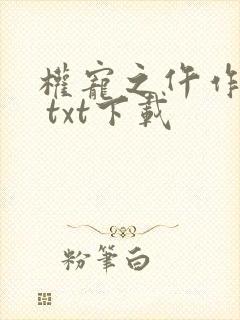 權寵之仵作
txt下載
粉筆白